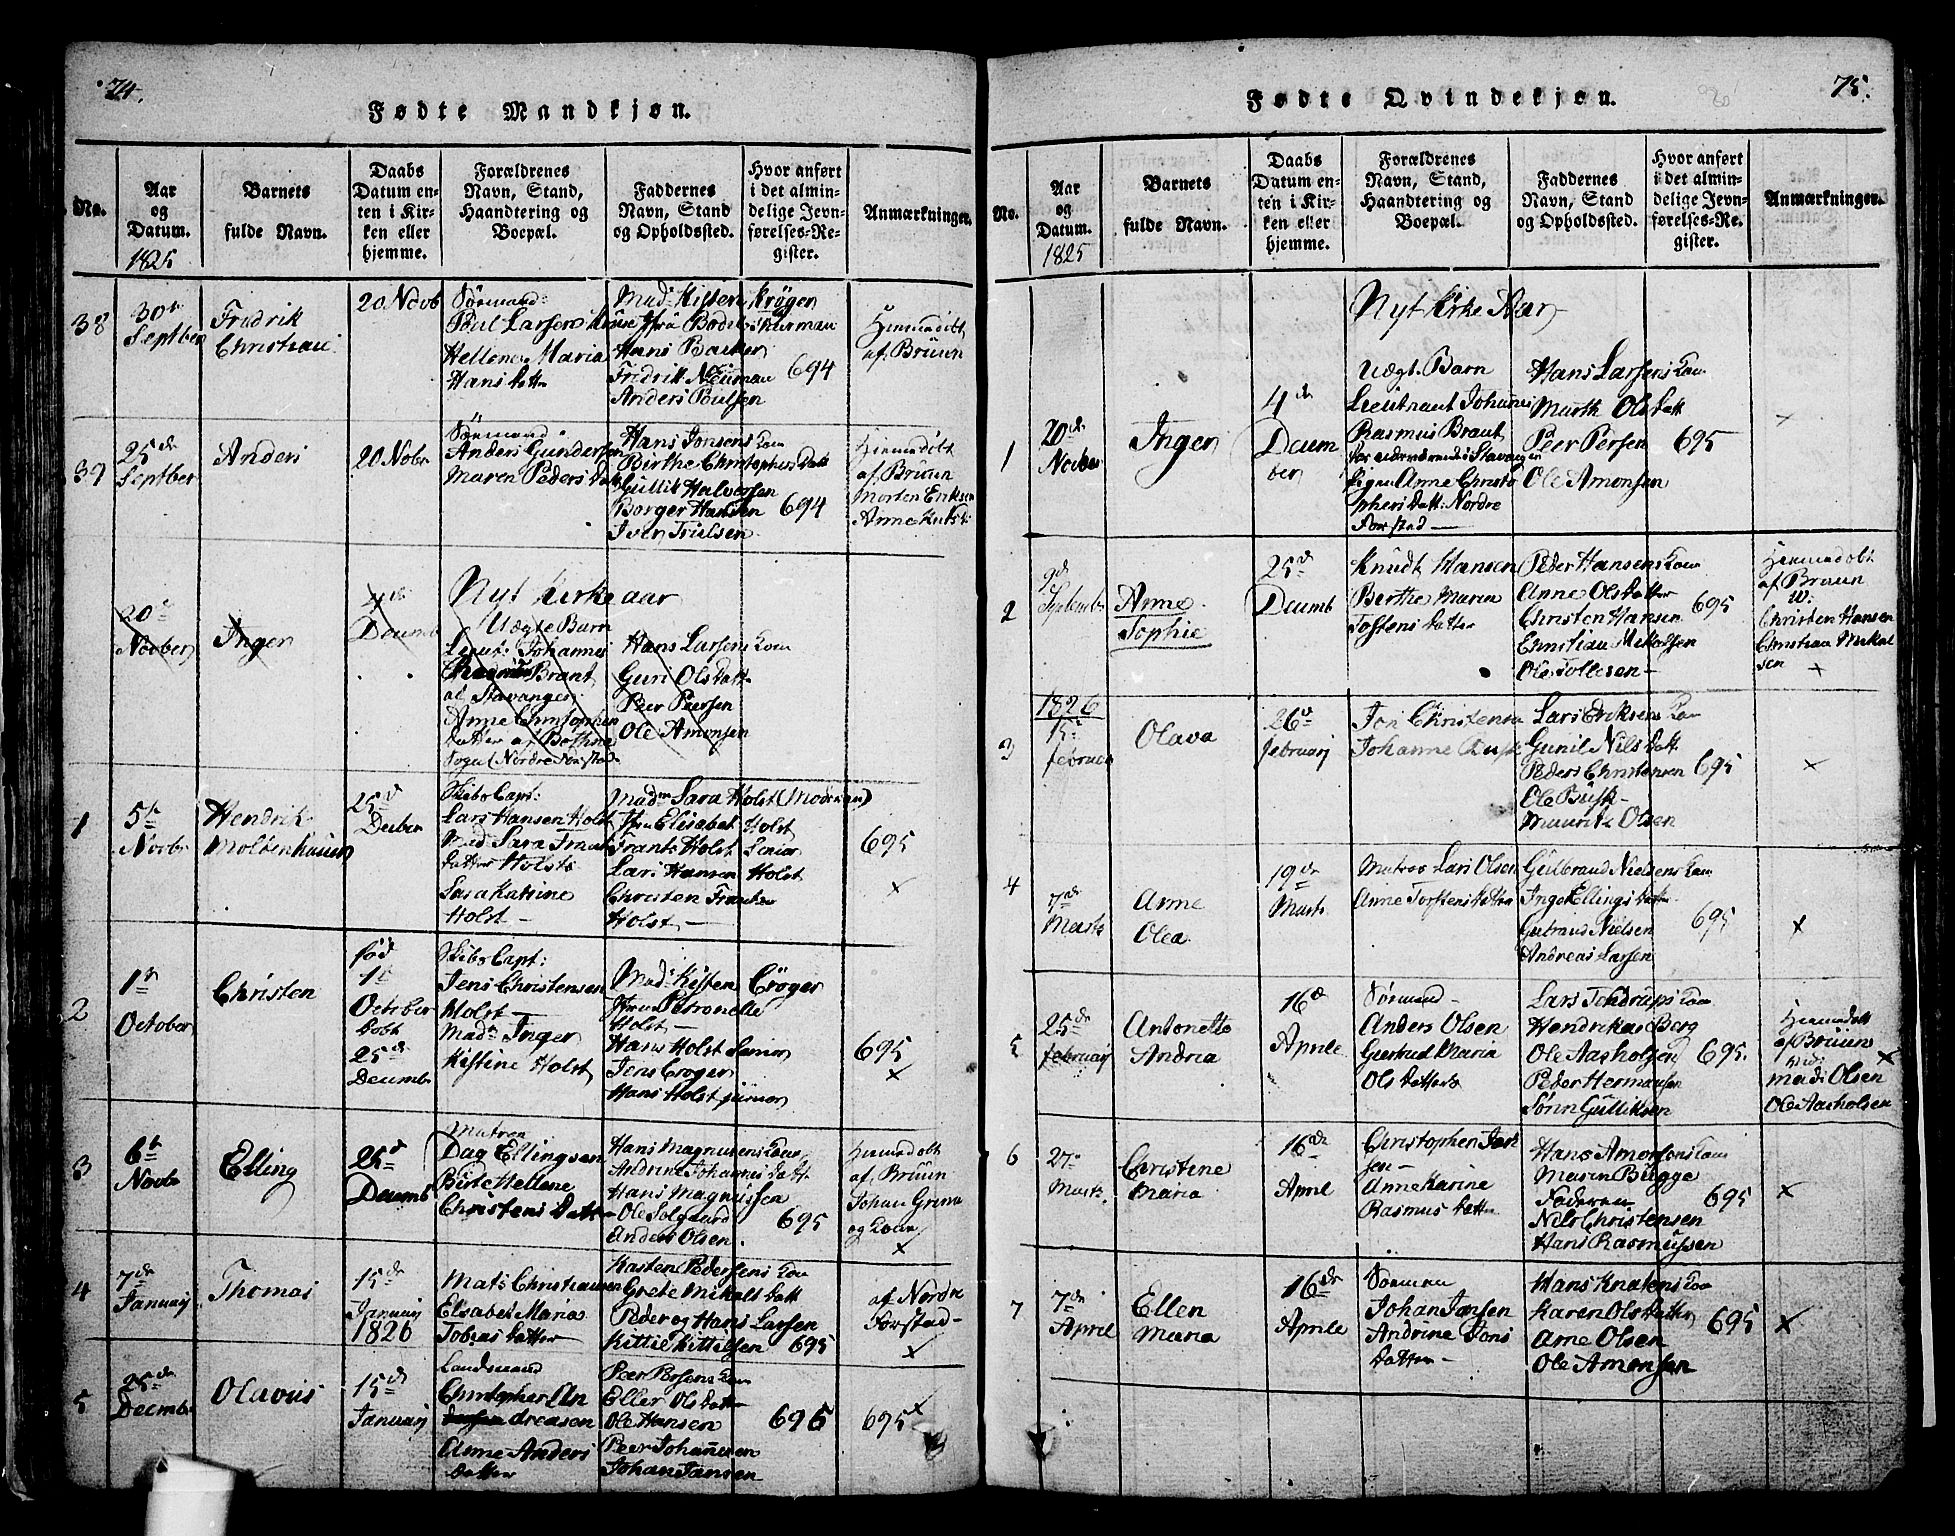 74.
Fødte Mandkjøn.
No.
Aar
og
Datum.
1825
Barnets
fulde Navn.
Daabs
Datum en-
ten i Kir-
ken eller
hjemme.
Forældrenes
Navn, Stand,
Haandtering og
Boepæl.
Faddernes
Navn, Stand
og Opholdssted.
Hvor anført
i det almin-
delige Jevn-
førelses-Re-
gister.
Anmærkninger.
38
30te
Septber
Fredrik
Christian
20 Novb
Sørmand
Poul Larsen
Hellene Maria
Hans Datter
Mad: Kisten Krøger
Hans Backer
Fredrik Neuman
Anders Poulsen
694
Hiemmedøbt
af Bruun
39
25de
Septber
Anders
20 Nobr
Sørmand
Anders Gundersen
Maren Peders Datt
Hans Jonsens Kone
Birthe Christophers Datt
Gullik Halversen
Borger Hansen
Iver Truelsen
694
Hiemmedøbt
af Bruun
Morten Eriksen
Anne Knuds D:
Nyt Kirke aar
20de
Novber
Inger
4de
Decemb
Uægte Barn
Lieut: Johannes
Rasmus Brant
af Stavanger
Anne Christophers
Datter af Bothne
Sogn (Nordre Forstad
Hans Larsens Kone
Guri Ols Datt
Peer Peersen
Ole Amonsen
1
5te
Novbr
Hendrik
Moldenhauer
25de
Decber
Skibs Capt:
Lars Hansen Holst
Mad: Sara Frants
Datter Holst
Sara Katrine
Holst
Madm Sara Holst (Moderen)
Jfru Elisabet Holst
Frants Holst Senior
Lars Hansen Holst
Christen Frantsen
Holst
695
x
2
1te
October
Christen
fød
1te
October
Døbt
25de
Decembr
Skibs Capt:
Jens Christensen
Holst
Madm Inger
Kistine Holst
Mad: Kisten Crøger
Jfru Petronelle
Holst
Hans Holst Senior
Jens Crøger
Hans Holst junior
695
x
3
6te
Novbr
Elling
25de
Decemb
Matros
Dag Ellingsen
Birte Hellene
Christens Datter
Hans Magnusens Kone
Andrine Johannes Datt
Hans Magnussen
Ole Solgaard
Anders Olsen.
695
Hiemmedøbt
af Bruun
Johan Grim
og Kone
x
4
7de
Januarj
Thomas
15de
Januarj
1826
Mats Christiansen
Elsabet Maria
Tobias Datter
Kasten Pedersens Kone
Grete Mikals Datt
Peder og Hans Larsen
Kittil Kittilsen
695
af Nordre
Forstad
x
5
25de
Decmbr
Olavus
15de
Januarj
Landmand
Christopher An
dreasen
Anne Anders
Datter
Peer Persens Kone
Eller Ols Datter
Ole Hansen
Peer Johannesen
Johan Jansen
695
695 x
75.
Fødte Qvindekjøn.
No.
Aar
og
Datum.
1825
Barnets
fulde Navn.
Daabs
Datum en-
ten i Kir-
ken eller
hjemme.
Forældrenes
Navn, Stand,
Haandtering og
Boepæl.
Faddernes
Navn, Stand
og Opholdssted.
Hvor anført
i det almin-
delige Jevn-
førelses-Re-
gister.
Anmærkninger.
Nyt Kirke Aar
1
20de
Novber
Inger
4de
Decem
ber
Uægt. Barn
Lieutnant Johannes
Rasmus Brant
for nærværende i Stavanger
Pigen Anne Christo
phers Datt: Nordre
Forstad
Hans Larsens Kone
Marth Ols Datt
Peer Persen
Ole Amonsen
695
x
2
9de
Septembr
Anne
Sophie
25de
Decemb
Knudt Hansen
Berthe Maria
Tostens Datter
Peder Hansens Kone
Anne Ols Datter
Christen Hansen
Christian Mikalsen
Ole Tollesen
695
Hiemmedøbt
af Bruun
W:
Christen Hansen
Christian Mikal
sen
x
3
1826
15de
februar
Olava
26de
februarj
Jon Christensen
Johanne
Lars Eriksens Kone
Gunil Nils Datt
Peders Christensen
Ole Busk
Maurits Olsen
695
x
4
7de
Marts
Anne
Olea
19de
Marts
Matros Lars Olsen
Anne Torstens Datter
Gulbrand Nielsens Kone
Inger Ellings Datter
Gulbrand Nielsen
Andreas Larsen
695
x
5
25de
februarj
Antonette
Andrea
16de
Aprile
Sørmand
Anders Olsen
Gjertrud Maria
Ols Datter
Lars Tondrups Kone
Hendrikae Berg
Ole Aasholsen
Peder Hermansen
Sørin Gulliksen
695.
Hiemmedøbt
af Bruun
x
Mads Olsen
Ole Aasholsen
6
27.
Marts.
Christine
Maria
16de
April
Christopher
sen
Anne Karine
Rasmus Datter
Hans Amorsens Kone
Maren Bugge
Faderen
Nils Christensen
Hans Rasmussen
695
x
7
7de
April
Ellen
Maria
16de
Aprile
Sørman
Johan Jansen
Andrine Jons
Datter
Hans Knutens Kone
Karen Ols Datter
Arne Olsen
Ole Amonsen
695
x